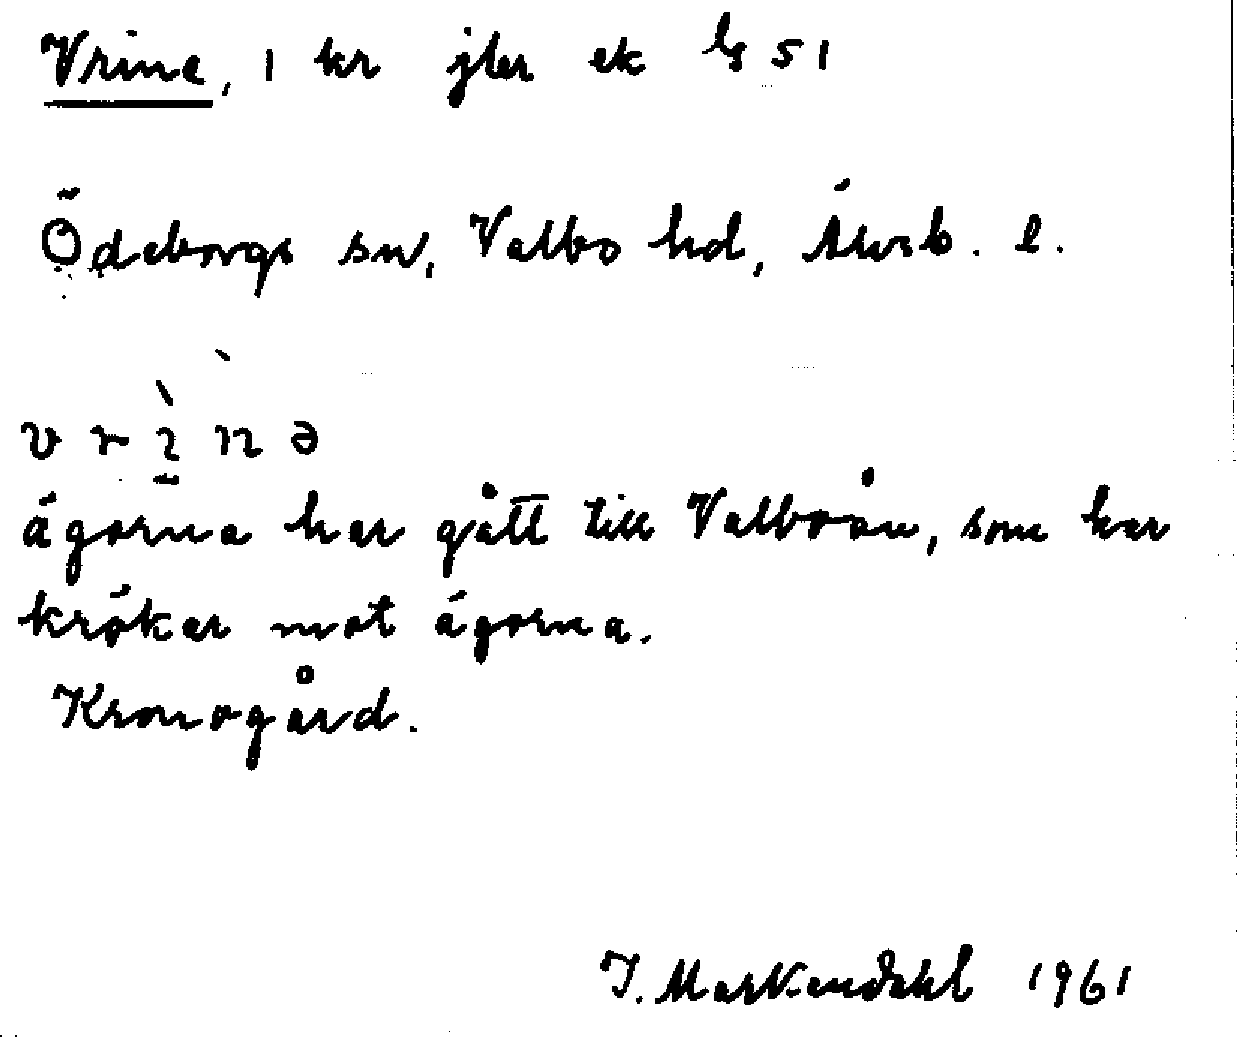 Vrine, 1 kr jter ek lg 51
Ödeborgs sn, Valbo hd, Älvsb. l.
v r ì n ə
ägorna har gått till Valboån, som har
krökar mot ägorna.
Kronogård.
I. Markendahl 1961